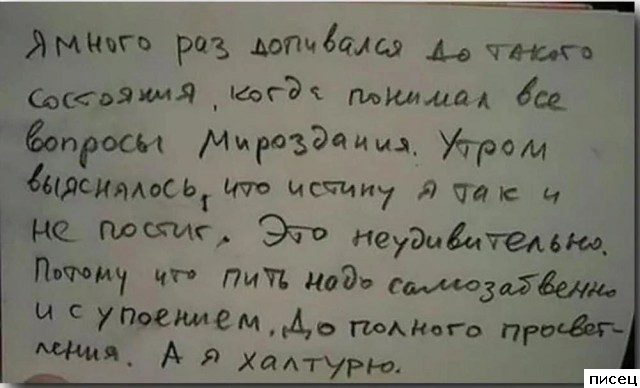 Я много раз допивался до такого
состояния, когда понимал все
вопросы Мироздания. Утром
выяснялось, что истину я так и
не постиг. Это неудивительно.
Потому что пить надо самозабвенно
и с упоением. До полного просвет-
ления. А я халтурю.
писец